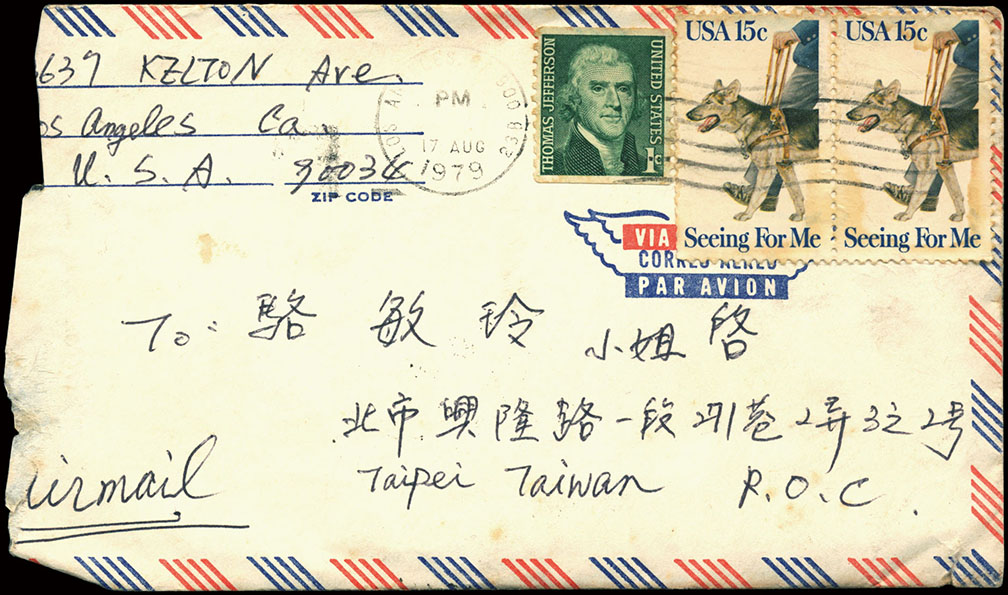 3637 KELTON Ave.
os Angeles Ca.
U. S. A. 90034
ZIP CODE
PM
17 AUG
1979
THOMAS JEFFERSON
UNITED STATES
1c
USA 15c
Seeing For Me
USA 15c
Seeing For Me
VIA
CORREO AEREO
PAR AVION
To: 駱 敏 玲 小姐 啓
北市興隆路一段271巷2弄3之2号
Taipei Taiwan R.O.C.
airmail